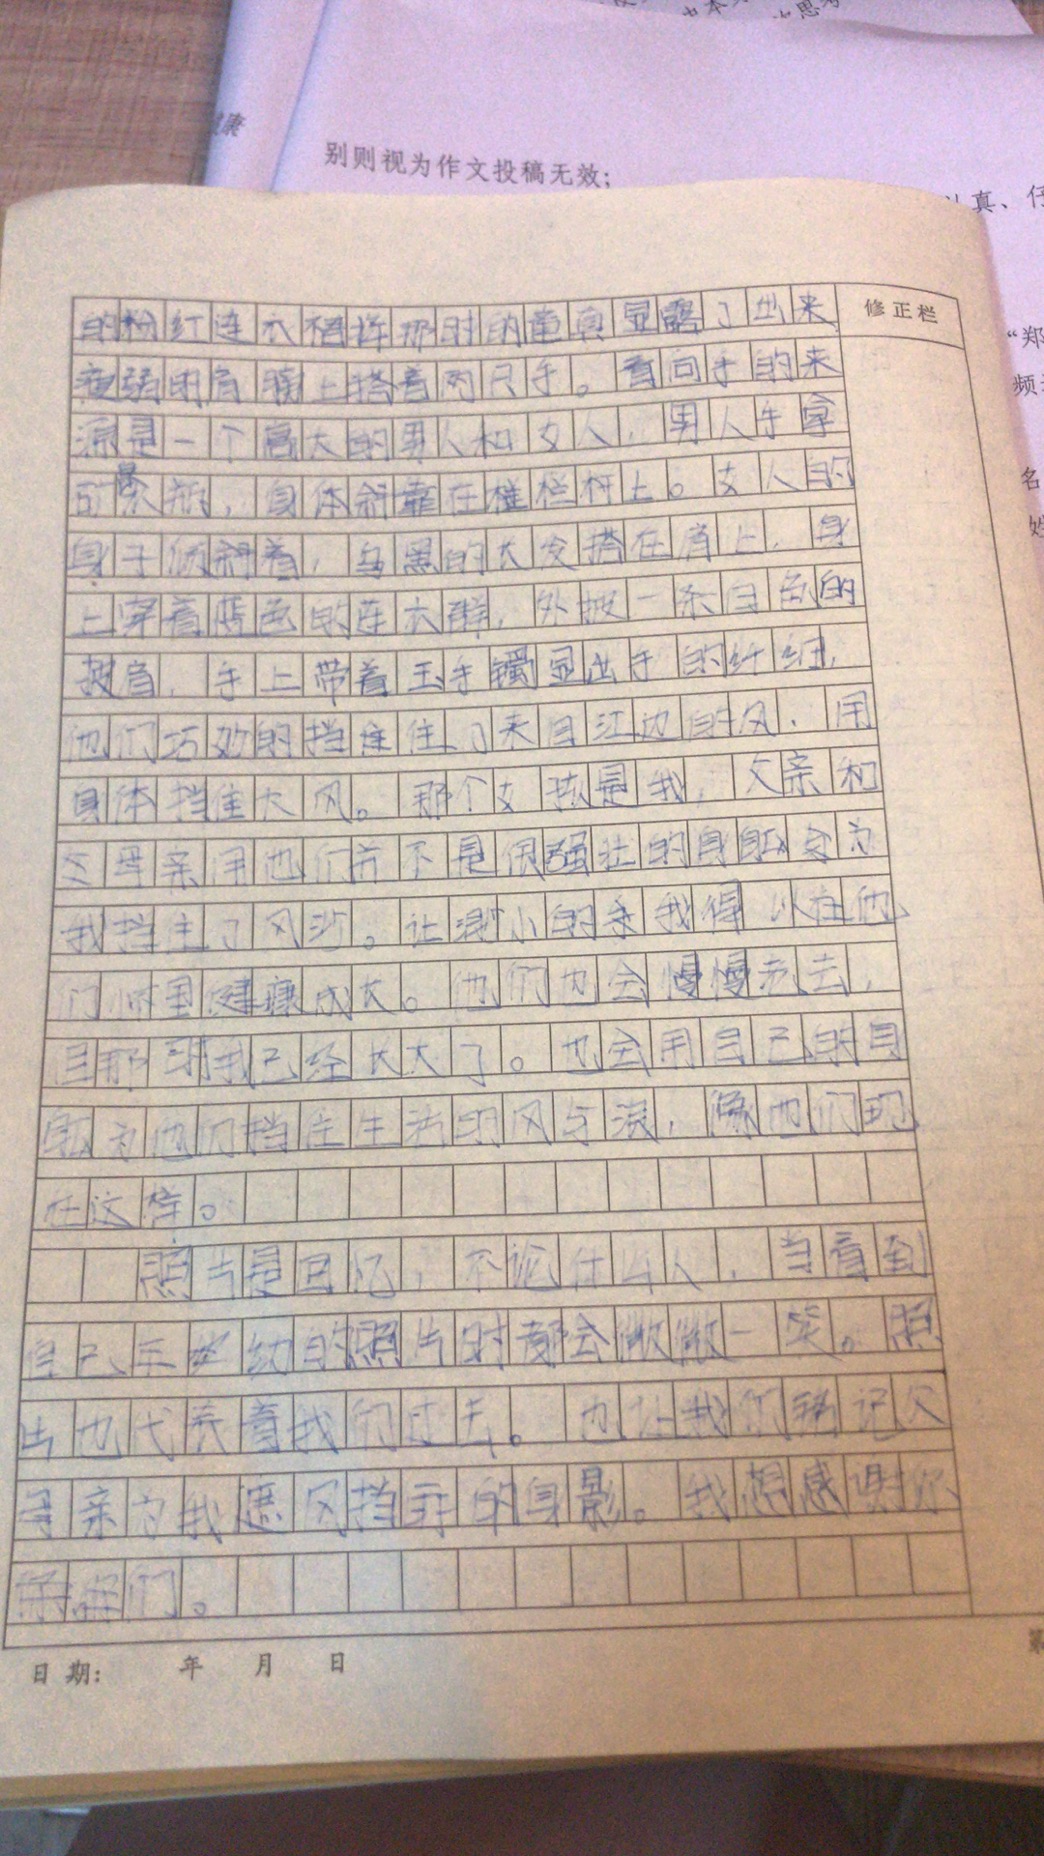 别则视为作文投稿无效；
真、仔
“郑
频
名
姓
康
修正栏
的粉红连衣裙将那时的童真显露了出来
瘦弱的肩膀上搭着两只手。看向手的来
源是一个高大的男人和女人，男人手拿
瓶，身体斜靠在栏杆上。女人的
身子倾斜着，乌黑的大发搭在肩上，身
上穿着蓝色的连衣群，外披一条白色的
披肩，手上带着玉手镯显出手的纤细，
他们巧妙的挡住了来自江边的风，用
身体挡住大风。那个女孩是我，父亲和
母亲用他们并不是很强壮的身躯为
我挡住了风沙。让小的我得以在他
们健康成长。他们也会慢慢老去，
但那时我已经长大了。也会用自己的身
躯为他们挡住生活的风与浪，像他们现
在这样。
照片是回忆，不论什么人，当看到
自己年幼的照片时都会微微一笑。照
片也代表着我们过去。也让我们铭记父
母亲为我遮风挡雨的身影。我想感谢
们。
日期： 年 月 日
第